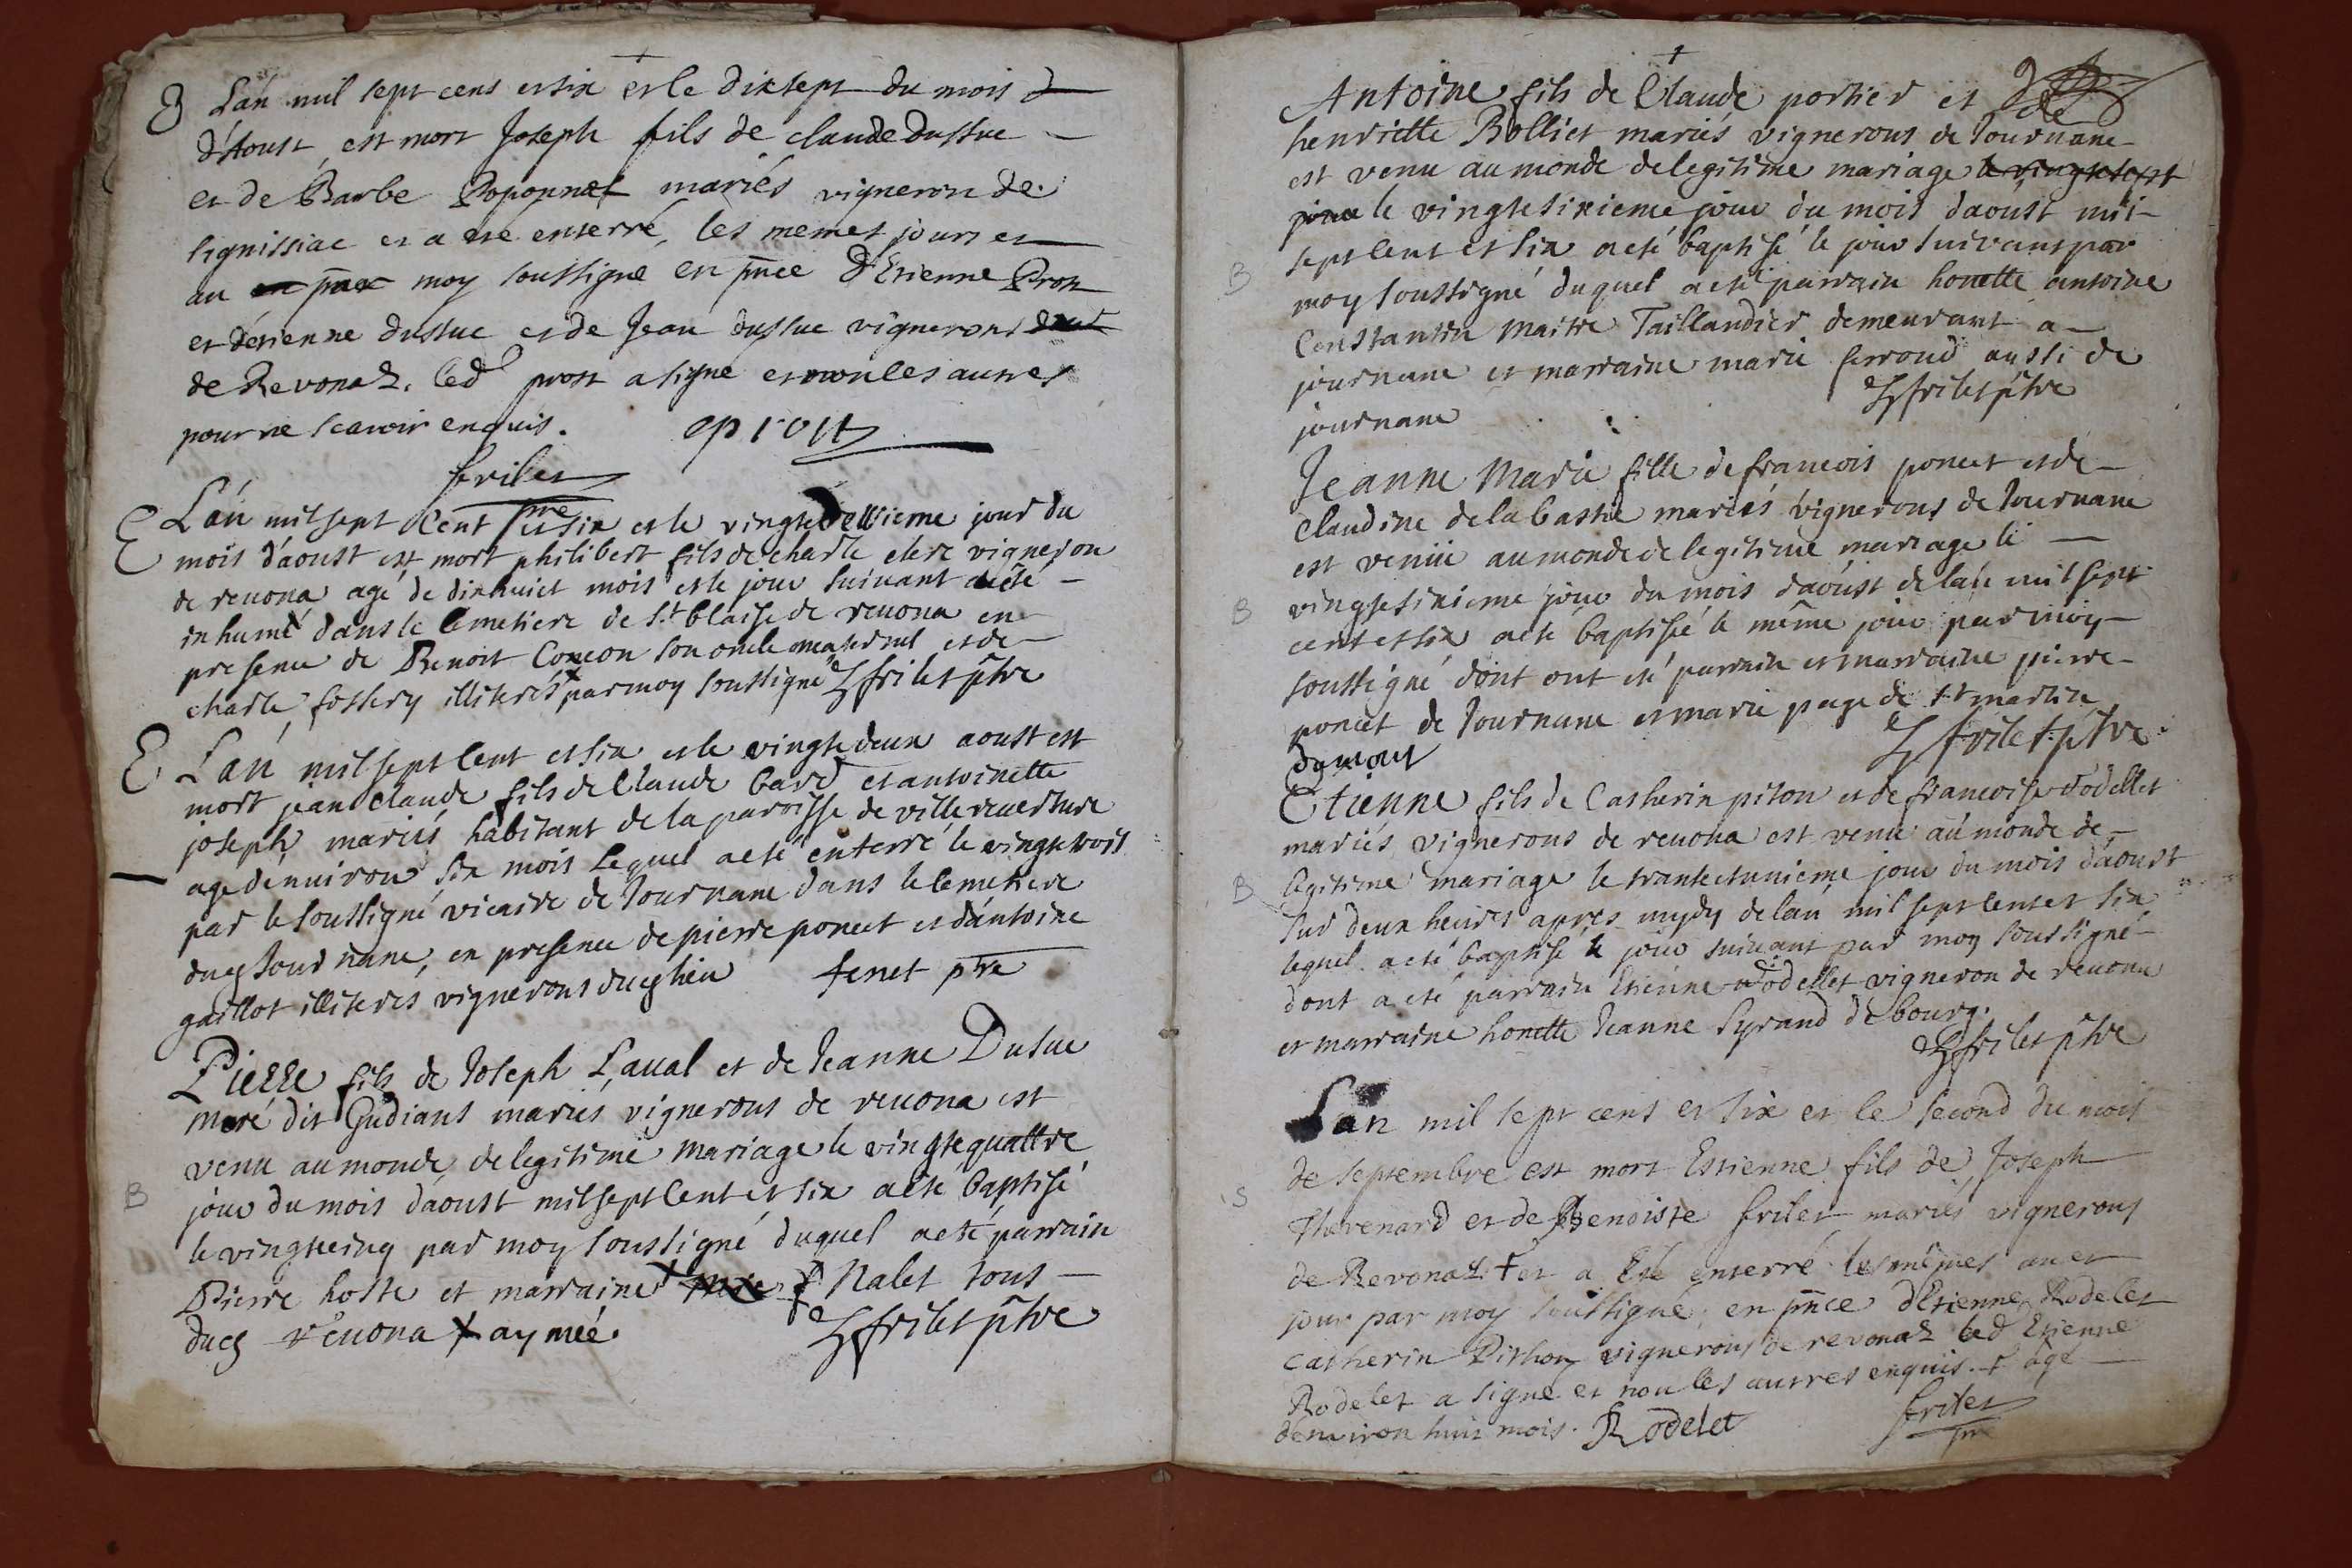 L'an mil sept cens et six et le dix sept du mois
d'Aoust, est mort Joseph fils de claude Dussuc
et de Barbe Poponnet mariés vigneron de
lignissiac et a esté enterré, les memes jours et
an moy soussigne en pnce D'Etienne Prost
et d'etienne dussuc et de Jean dussuc vignerons
de Revonaz. led prost a signé et non les autres
pour ne scavoir enquis. eprost
frilet
pre
L'an mil sept Cent et six et le vingtedeusieme jour du
mois d'aoust est mort philibert fils de charle clere vigneron
de reuona agé de dixhuict mois et le jour suivant a eté
inhumé dans le Cemetiere de st blaise de reuona en
presence de Benoit Conceon son oncle maternel et de
charle fossery illiterés par moy soussigné frilet ptre
L'an mil sept Cent et six et le vingte deux aoust est
mort jean Claude fils de Claude bavd et antoinette
joseph mariés habitant de la paroisse de villereuersure
age denuiron six mois lequel a eté enterré le vingt trois
par le soussigné vicaire de Journane dans le Cemetiere
dueg Journane, en presence de pierre poncet et d'antoine
gaillot illiterés vignerons dueg lieu tenet ptre
Pierre fils de Joseph Laual et de Jeanne Dusuc
moré dit Gudians mariés vignerons de reuona est
venu au monde de legitime mariage le vingte quattre
B jour du mois daoust mil sept Cent et six a eté baptisé
le vingt cinq par moy soussigné duquel a eté parrain
Pierre hoste et marraine Nalet tous
dueg reuona aymée. frilet ptre
Antoine fils de Claude portier et de
henriette Bolliet mariés vignerons de Journane
est venu au monde de legitime mariage le vingt sept
le vingtesixieme jour du mois daoust mil
sept Cent et six a eté baptisé le jour suivant par
B moy soussigné duquel a eté parrain honette antoine
Constantin maitre Taillandier demeurant a
journane et marraine marie ferroud aussi de
journane frilet ptre
Jeanne Marie fille de francois poncet et de
Claudine de la bastie mariés vignerons de Journane
est venüe au monde de legitime mariage le
B vingtesixieme jour du mois daoust de lan mil sept
cent et six a eté baptisée le même jour par moy
soussigné dont ont eté parrain et marraine pierre
poncet de Journane et marie page de st martin
dumont frilet ptre
Etienne fils de Catherin piton et de francoise rodellet
mariés vignerons de reuona est venu au monde de
B legitime mariage le trante et unieme jour du mois d'aoust
sur deux heures apres mydy de lan mil sept cent et six
lequel a eté baptisé le jour suivant par moy soussigné
dont a eté parrain Etiénne rodellet vigneron de reuona
et marraine honette Jeanne Syrand de bourg.
frilet ptre
L'an mil sept cens et six et le second du mois
de septembre est mort Estienne fils de Joseph
S Thevenard et de Benoiste frilet mariés vignerons
de Revonaz + et a Esté enterré les mêmes an et
jour par moy soussigné, en pnce d'Etienne Rodelet
Catherin Pithon vignerons de revonaz led Etienne
Rodelet a signé et non les autres enquis. + âgé
denviron huit mois. Rodelet frilet
pre